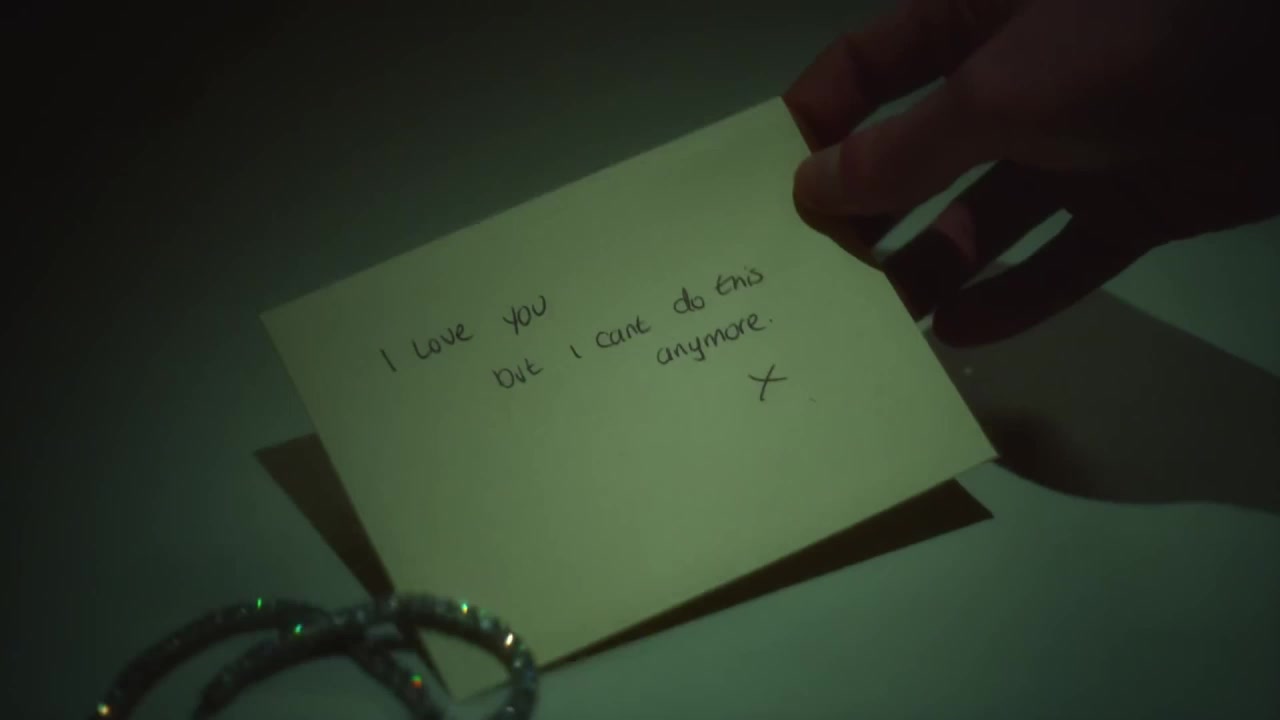 I Love you
but i cant do this
anymore.
X